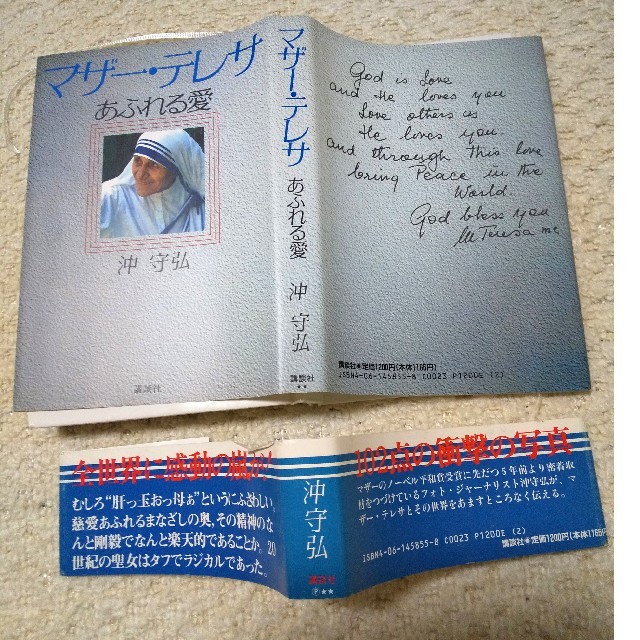 マザー・テレサ
あふれる愛
沖 守弘
講談社
マザー・テレサ あふれる愛 沖 守弘
講談社
★★
God is Love
and He loves you
Love others as
He loves you.
and through this love
bring Peace in the
World.
God bless you
M Teresa mc
講談社●定価1200円(本体1165円)
ISBN4-06-145855-8 C0023 P1200E (2)
全世界に感動の嵐が!
むしろ“肝っ玉おっ母ぁ”というにふさわしい、
慈愛あふれるまなざしの奥、その精神のな
んと剛毅でなんと楽天的であることか。20
世紀の聖女はタフでラジカルであった。
沖 守弘
講談社
Ⓟ★★
102点の衝撃の写真
マザーのノーベル平和賞受賞に先だつ5年前より密着取
材をつづけているフォト・ジャーナリスト沖守弘が、マ
ザー・テレサとその世界をあますところなく伝える。
ISBN4-06-145855-8 C0023 P1200E (2)
講談社●定価1200円(本体1165円